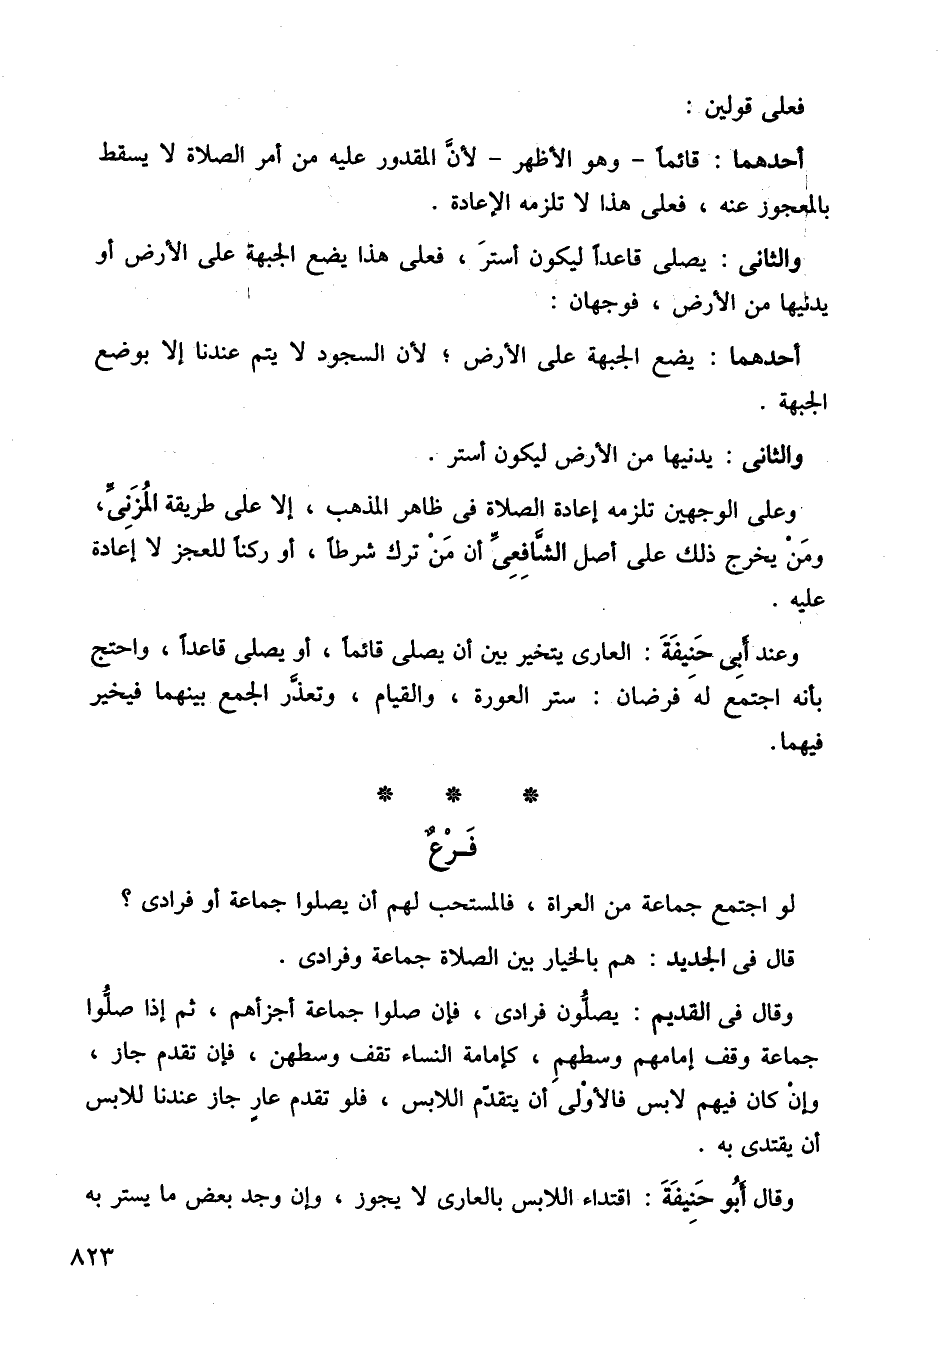 فعلى قولين :
أحدهما : قائماً - وهو الأظهر - لأنَّ المقدور عليه من أمر الصلاة لا يسقط
بالمعجوز عنه ، فعلى هذا لا تلزمه الإعادة .
والثانى : يصلى قاعداً ليكون أسترَ ، فعلى هذا يضع الجبهة على الأرض أو
يدنيها من الأرض ، فوجهان :
أحدهما : يضع الجبهة على الأرض ؛ لأن السجود لا يتم عندنا إلا بوضع
الجبهة .
والثانى : يدنيها من الأرض ليكون أستر .
وعلى الوجهين تلزمه إعادة الصلاة فى ظاهر المذهب ، إلا على طريقة المُزَنِىِّ،
ومَنْ يخرج ذلك على أصل الشَّافِعِىِّ أن مَنْ ترك شرطاً ، أو ركناً للعجز لا إعادة
عليه .
وعند أَبِى حَنِيفَةَ : العارى يتخير بين أن يصلى قائماً ، أو يصلى قاعداً ، واحتج
بأنه اجتمع له فرضان : ستر العورة ، والقيام ، وتعذَّر الجمع بينهما فيخير
فيهما.
* * *
فَـرْعٌ
لو اجتمع جماعة من العراة ، فالمستحب لهم أن يصلوا جماعة أو فرادى ؟
قال فى الجديد : هم بالخيار بين الصلاة جماعة وفرادى .
وقال فى القديم : يصلُّون فرادى ، فإن صلوا جماعة أجزأهم ، ثم إذا صلُّوا
جماعة وقف إمامهم وسطهم ، كإمامة النساء تقف وسطهن ، فإن تقدم جاز ،
وإنْ كان فيهم لابس فالأوْلى أن يتقدّم اللابس ، فلو تقدم عارٍ جاز عندنا للابس
أن يقتدى به .
وقال أَبُو حَنِيفَةَ : اقتداء اللابس بالعارى لا يجوز ، وإن وجد بعض ما يستر به
٨٢٣